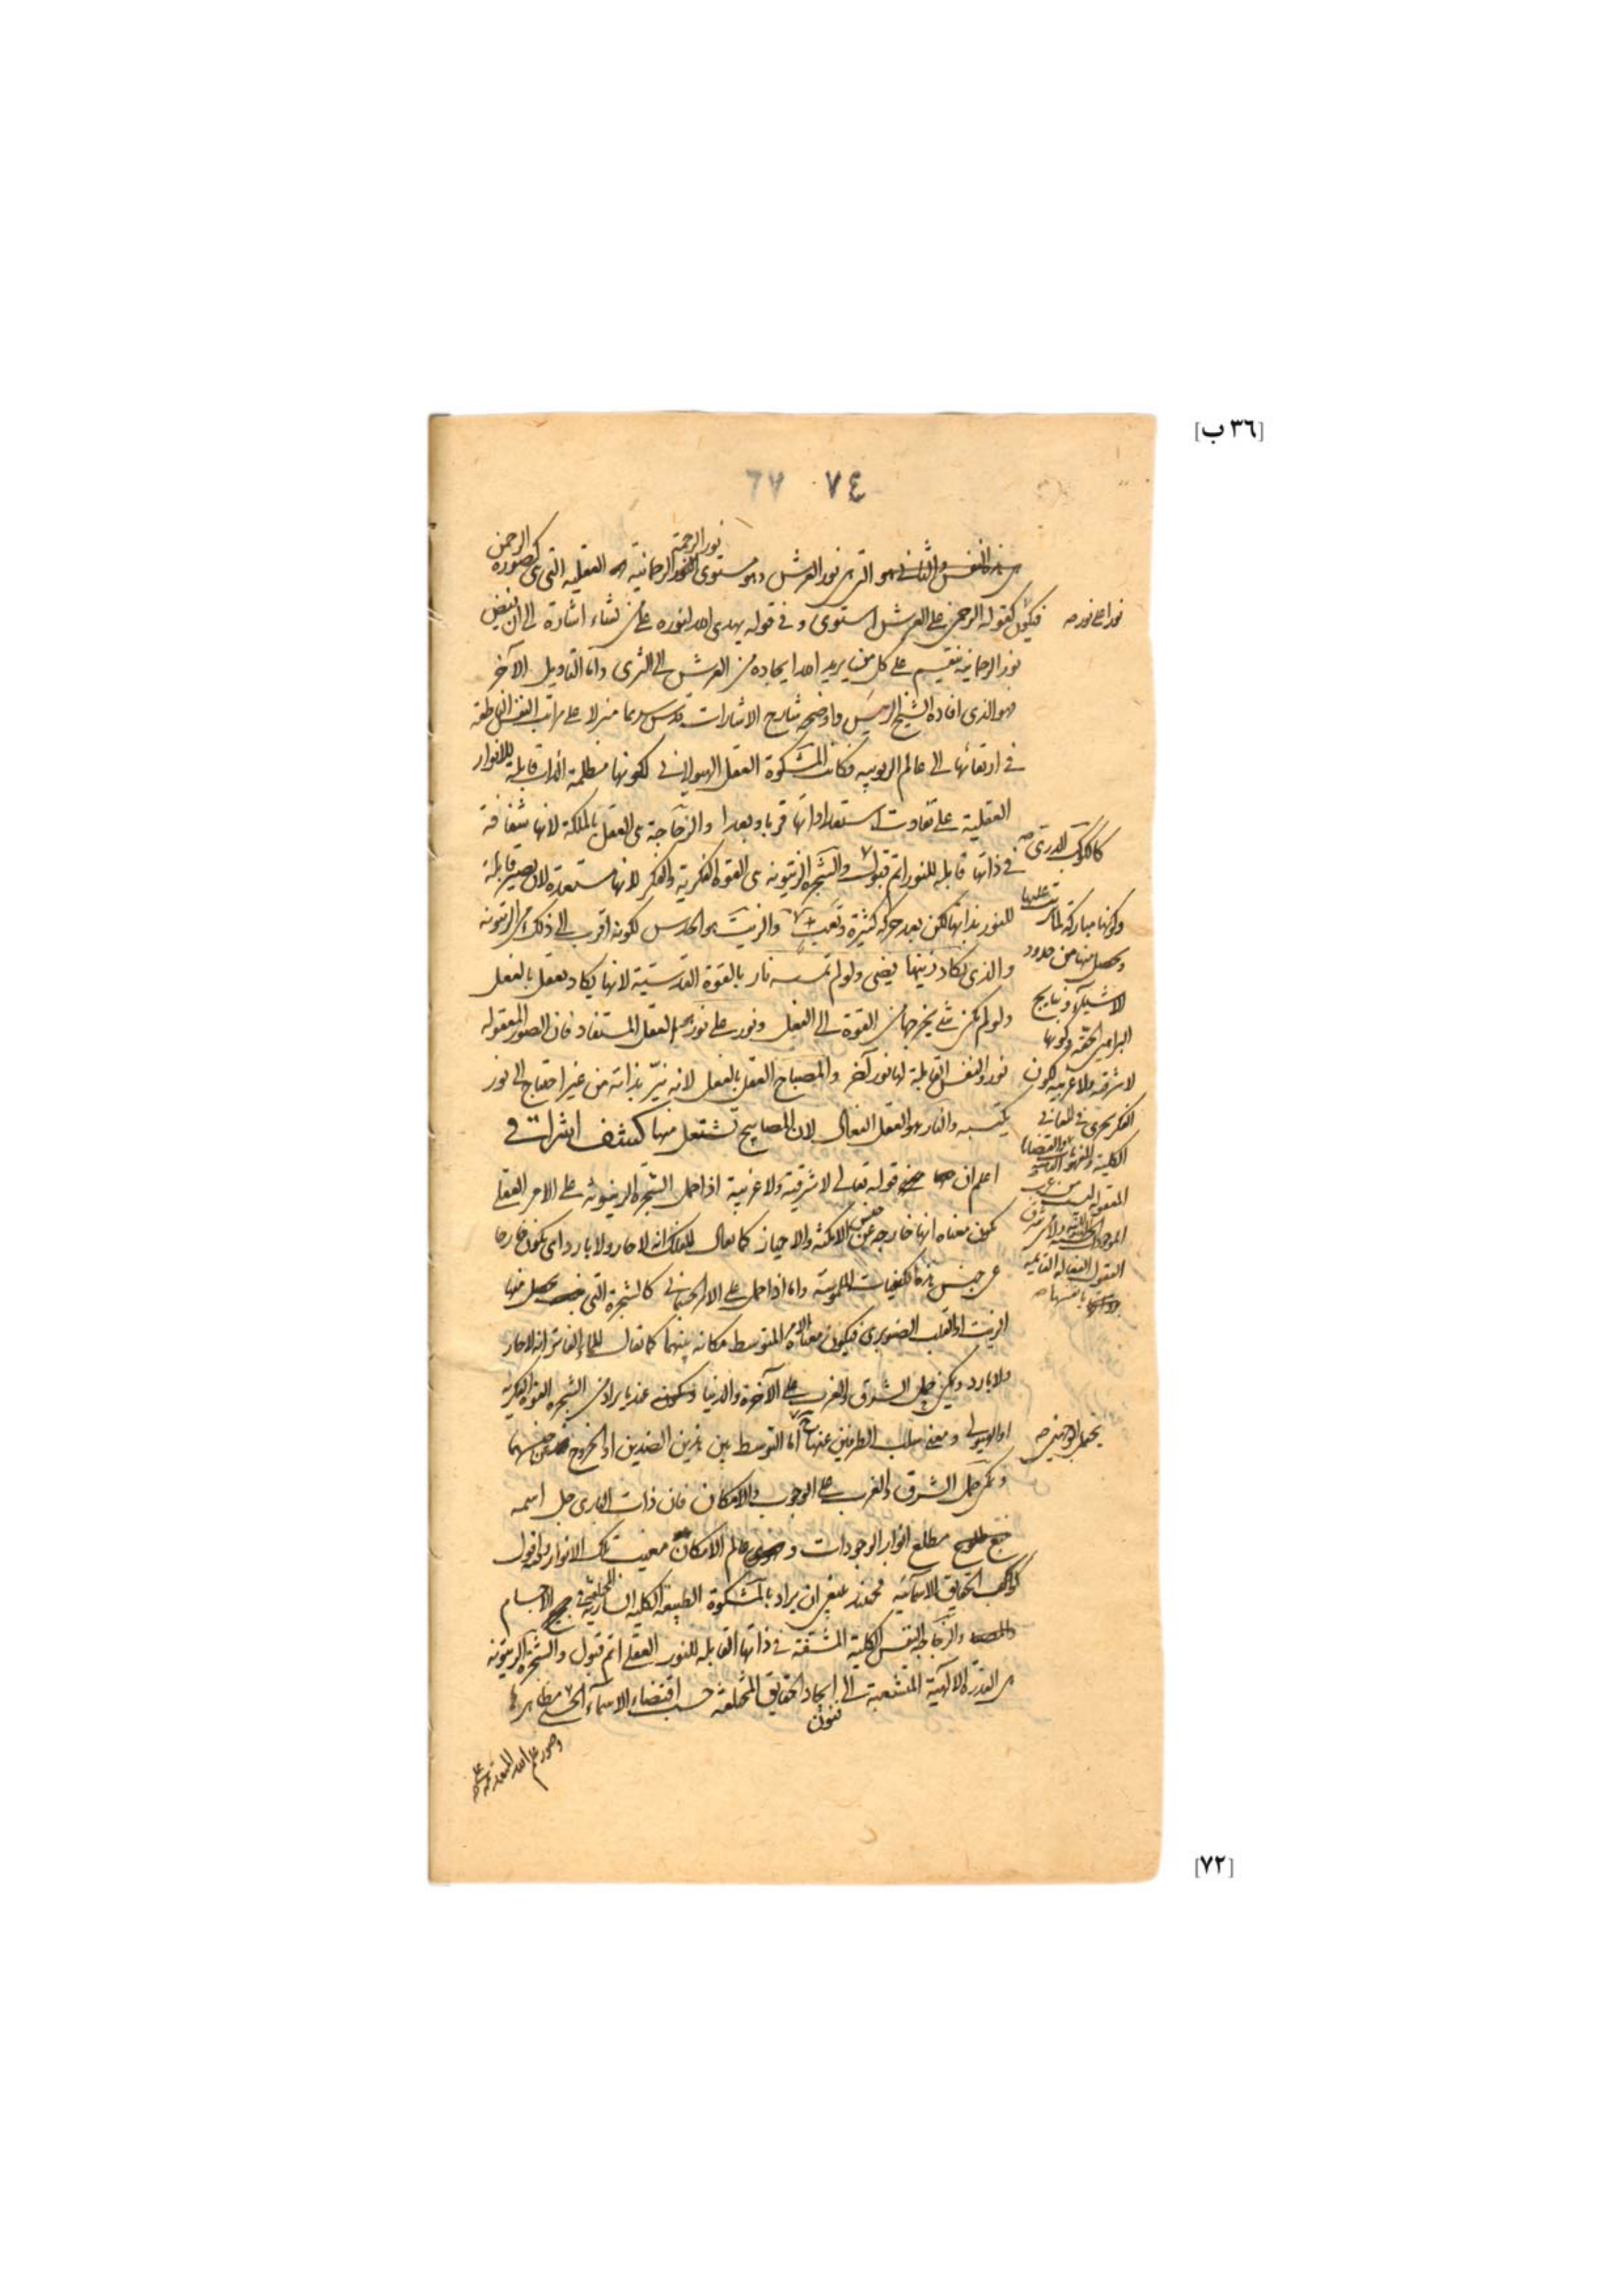 [٣٦ ب]
٧٤ ٦٧
نور الرحمة
الرحمن
هو نور العرش وهو مستوى الرحمانية العقلية التي هي كصورة
فيكون كقوله الرحمن على العرش استوى وفي قوله يهدى الله لنوره من يشاء اشارة الى ان فيض
نور الرحمانية ينقسم على كل من يريد الله ايجاده من العرش الى الثرى واما التاويل الآخر
فهو الذى افاده الشيخ الرئيس واوضحه شارح الاشارات قدس سرهما منزلا على مراتب النفس الناطقة
في ارتقائها الى عالم الربوبيه فكانت المشكوة العقل الهيولانى لكونها مظلمة الذات قابلة للانوار
العقلية على تفاوت استعداداتها قربا وبعدا والزجاجة هى العقل بالملكة لانها شفافة
في ذاتها قابلة للنور اتم قبول والشجرة الزيتونه هى القوة الفكرية والفكر لانها مستعدة لان تصير قابلة
للنور بذاتها لكن بعد حركة كثيرة وتعب والزيت هو الحدس لكونه اقرب الى ذلك من الزيتونه
والذى يكاد زيتها يضئ ولو لم تمسسه نار بالقوة القدسية لانها يكاد يعقل بالفعل
ولو لم يكن شئ يخرجها من القوة الى الفعل ونور على نور هو العقل المستفاد فان الصور المعقولة
نور والنفس القابلة لها نور آخر والمصباح العقل بالفعل لانه نيّر بذاته من غير احتياج الى نور
يكتسبه والنار هو العقل الفعال لان المصابيح تشتعل منها كشف اشراقي
اعلم ان قوله تعالى لا شرقية ولا غربية اذا حمل الشجرة الزيتونة على الامر العقلى
يكون معناه انها خارجة عن جنس الامكنة والاحياز كما يقال للفلك انه لا حار ولا بارد اى يكون خارجا
عن جنس هذه الكيفيات الملموسة واما اذا حمل على الامر الجسمانى كالشجرة التي يحصل منها
الزيت او القلب الصنوبرى فيكون معناه الامر المتوسط مكانه بينهما كما يقال للماء الفاتر انه لا حار
ولا بارد ويمكن حمل الشرق والغرب على الآخرة والدنيا عند ما يراد من الشجرة القوة الفكرية
او الهيولى ومعنى سلب الطرفين عنها اما التوسط بين هذين الضدين او الخروج عن جنسهما
ويمكن حمل الشرق والغرب على الوجوب والامكان فان ذات البارى جل اسمه
مطلع انوار الوجودات وعالم الامكان مغيب تلك الانوار وافول
كواكب الحقايق الاسمائية فحينئذ ينبغى ان يراد بالمشكوة الطبيعة الكلية السارية في الاجسام
والزجاجة النفس الكلية المشفة في ذاتها القابلة للنور العقلى اتم قبول والشجرة الزيتونه
هى القدرة الالهية المتشعبة الى ايجاد الحقايق المختلفة حسب اقتضاء الاسماء الحسنى مظاهرها
فنون
نور على نور صح
كالكوكب الدرى صح
وكونها مباركة لما يترتب عليها
ويحصل منها من حدود
الاشياء ونتايج
البراهين الحقة وكونها
لا شرقية ولا غربية لكون
الفكر يجرى في المعانى
الكلية
العقول الفعالة القائمة
بانفسها صح
[٧٢]